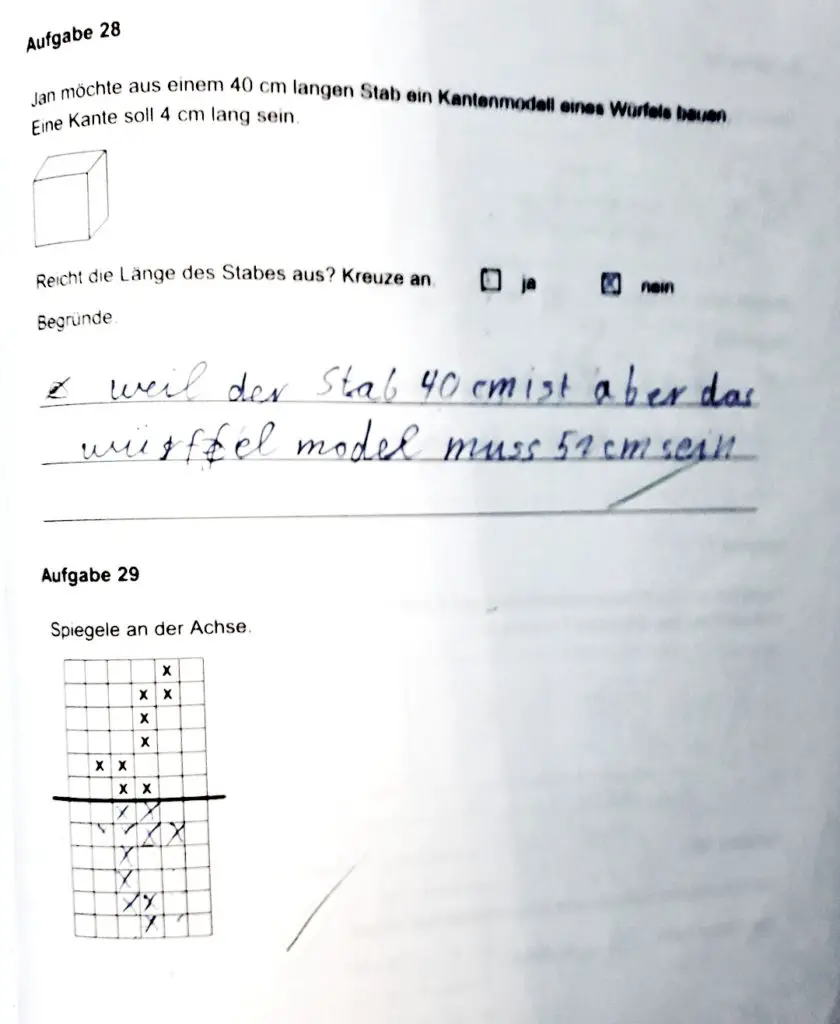 Aufgabe 28
Jan möchte aus einem 40 cm langen Stab ein Kantenmodell eines Würfels bauen.
Eine Kante soll 4 cm lang sein.
Reicht die Länge des Stabes aus? Kreuze an. ja nein
Begründe.
weil der Stab 40 cm ist aber das
würffel model muss 51 cm sein
Aufgabe 29
Spiegele an der Achse.
x
x x
x
x
x x
x x